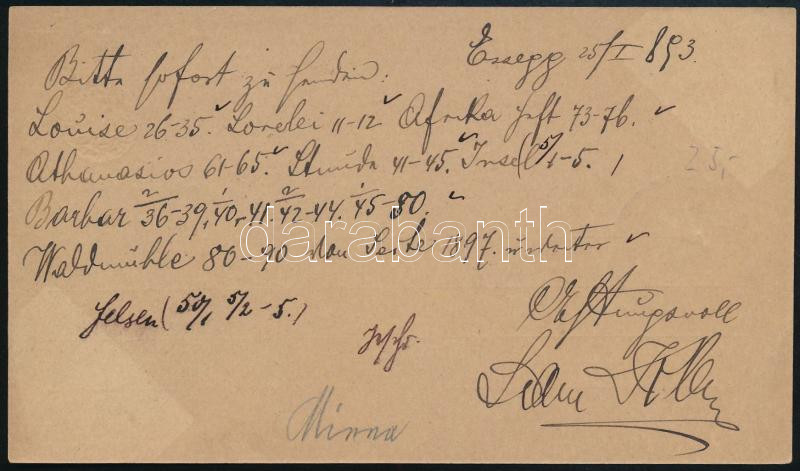 Essegg 25/I 893.
Bitte sofort zu senden:
Louise 26-35. Lorelei 11-12 Afrika Heft 73-76.
Athanasios 61-65. Stunde 41-45. Insel (5/1-5.)
Barbar 2/36-39, 1/40, 41. 2/42-44. 1/45-80.
Waldmühle 80-90 von Seite 1897. u weiter
Felsen (50/1 5/2-5.)
Achtungsvoll
Minna
25,-
darabanth